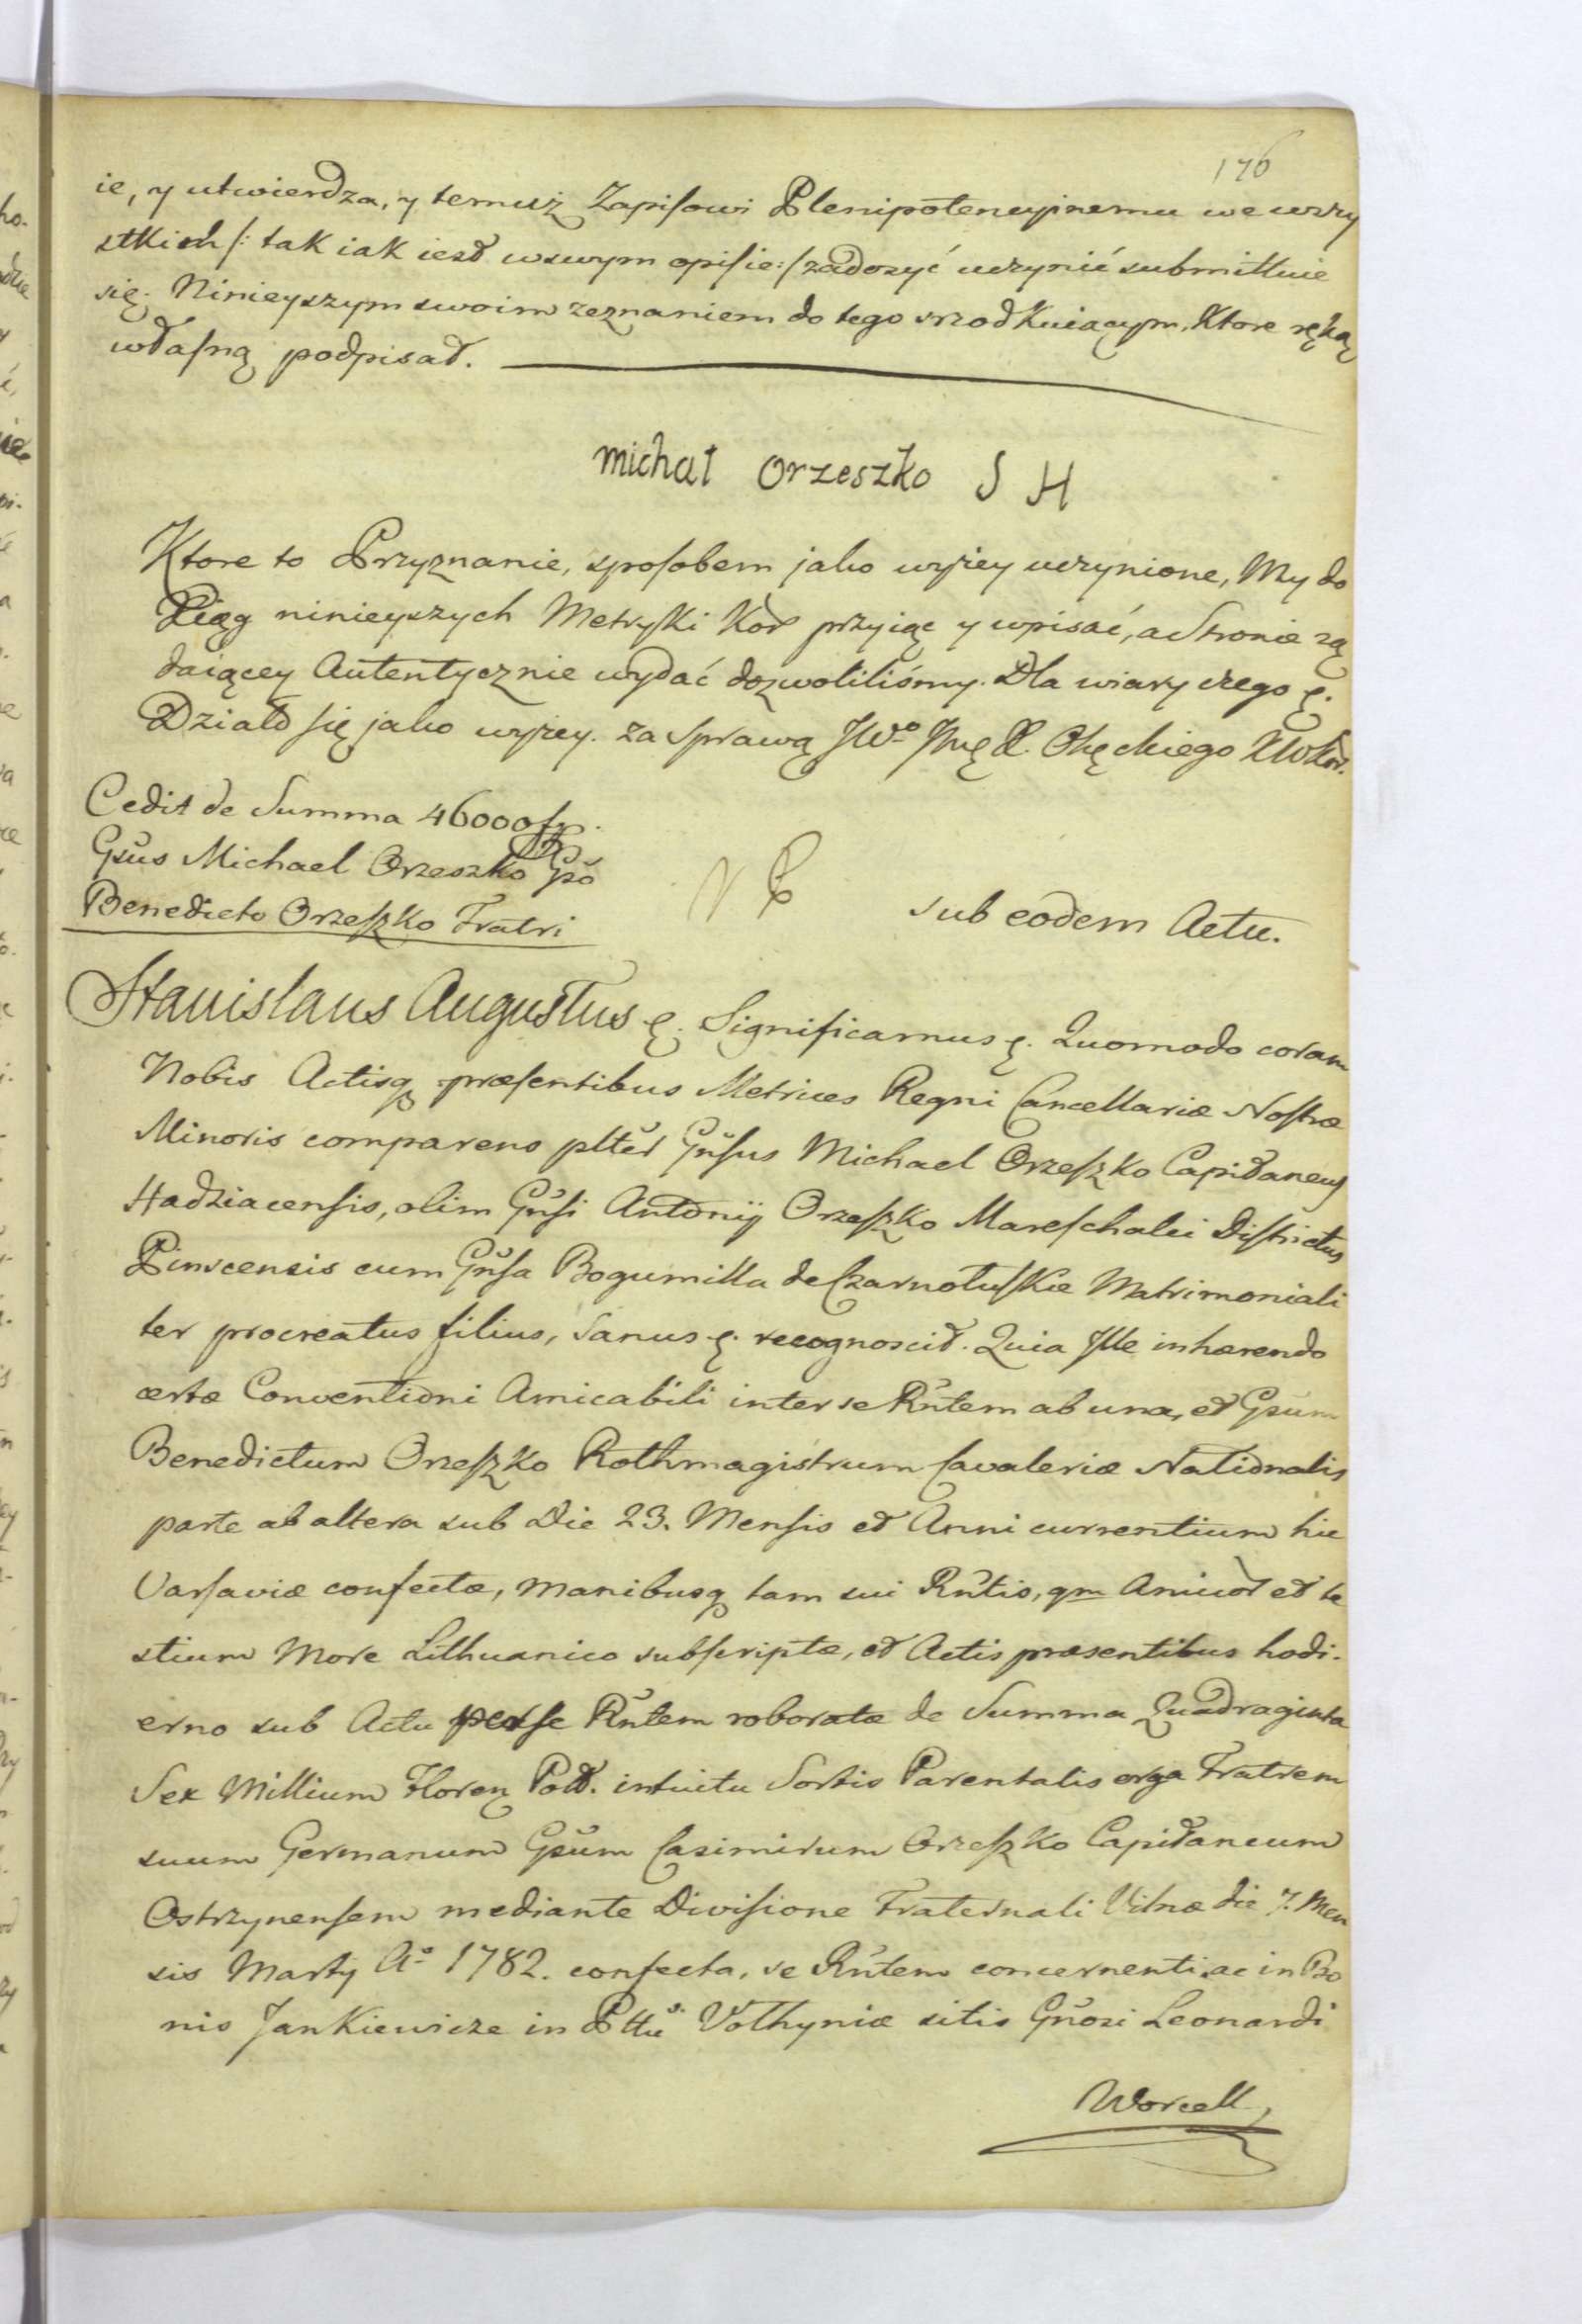 176
ie, y utwierdza, y temuż Zapisowi Plenipotencyjnemu we wszy
stkich /: tak iak iest w swym opisie :/ zadosyć uczynić submittuie
się. Ninieyszym swoim zeznaniem do tego srzodkuiącym. Ktore ręką
własną podpisał.
michał orzeszko S H
Ktore to Przyznanie, sposobem jako wyżey uczynione, My do
Xiąg ninieyszych Metryki Kor przyiąć y wpisać, a Stronie żą
daiącey Autentycznie wydać dozwoliliśmy. Dla wiary czego ę.
Działo się jako wyżey. za sprawą JWo Jmę X. Okęckiego
Cedit de Summa 46000 fp.
Gsus Michael Orzeszko Gso
Benedicto Orzeszko Fratri
sub eodem Actu.
Stanislaus Augustus ę. Significamus ę. Quomodo coram
Nobis Actisq præsentibus Metrices Regni Cancellariæ Nostræ
Minoris comparens plter Gnsus Michael Orzeszko Capitaneus
Hadziacensis, olim Gnsi Antonij Orzeszko Mareschalci Districtus
Pinscensis cum Gnsa Bogumilla de Czarnotuskie Matrimoniali
ter procreatus filius, Sanus ę. recognoscit. Quia Ille inhærendo
certæ Conventioni Amicabili inter se Rntem ab una, et Gsum
Benedictum Orzeszko Rothmagistrum Cavaleriæ Nationalis
parte ab altera sub Die 23. Mensis et Anni currentium hic
Varsaviæ confectæ, manibusq tam sui Rntis, qm Amicor et te
stium More Lithuanico subscriptæ, et Actis præsentibus hodi-
erno sub Actu per se Rntem roboratæ de Summa Quadraginta
Sex Millium Floren Poll. intuitu Sortis Parentalis erga Fratrem
suum Germanum Gsum Casimirum Orzeszko Capitaneum
Ostrzynensem mediante Divisione Fraternali Vilnæ die 7. Men
sis Martij Ao 1782. confecta, se Rntem concernenti, ac in Bo
nis Jankiewicze in Pttu Volhyniæ sitis Gnosi Leonardi
Worcell